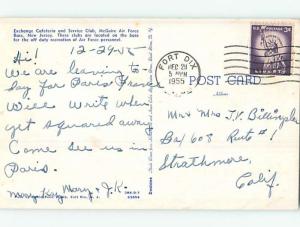 Exchange Cafeteria and Service Club, McGuire Air Force
Base, New Jersey. These clubs are located on the base
for the off duty recreation of Air Force personnel.
Hi! 12-29-55
We are leaving to-
day for Paris France
Will write when
get squared away.
Come see us in
Paris.
Mary & J.K.
FORT DIX
DEC 29
5 PM
1955
POST CARD
U.S. POSTAGE 3¢
LIBERTY
Mr & Mrs J.K. Billingsley
Box 608 Route 1
Strathmore,
Calif.